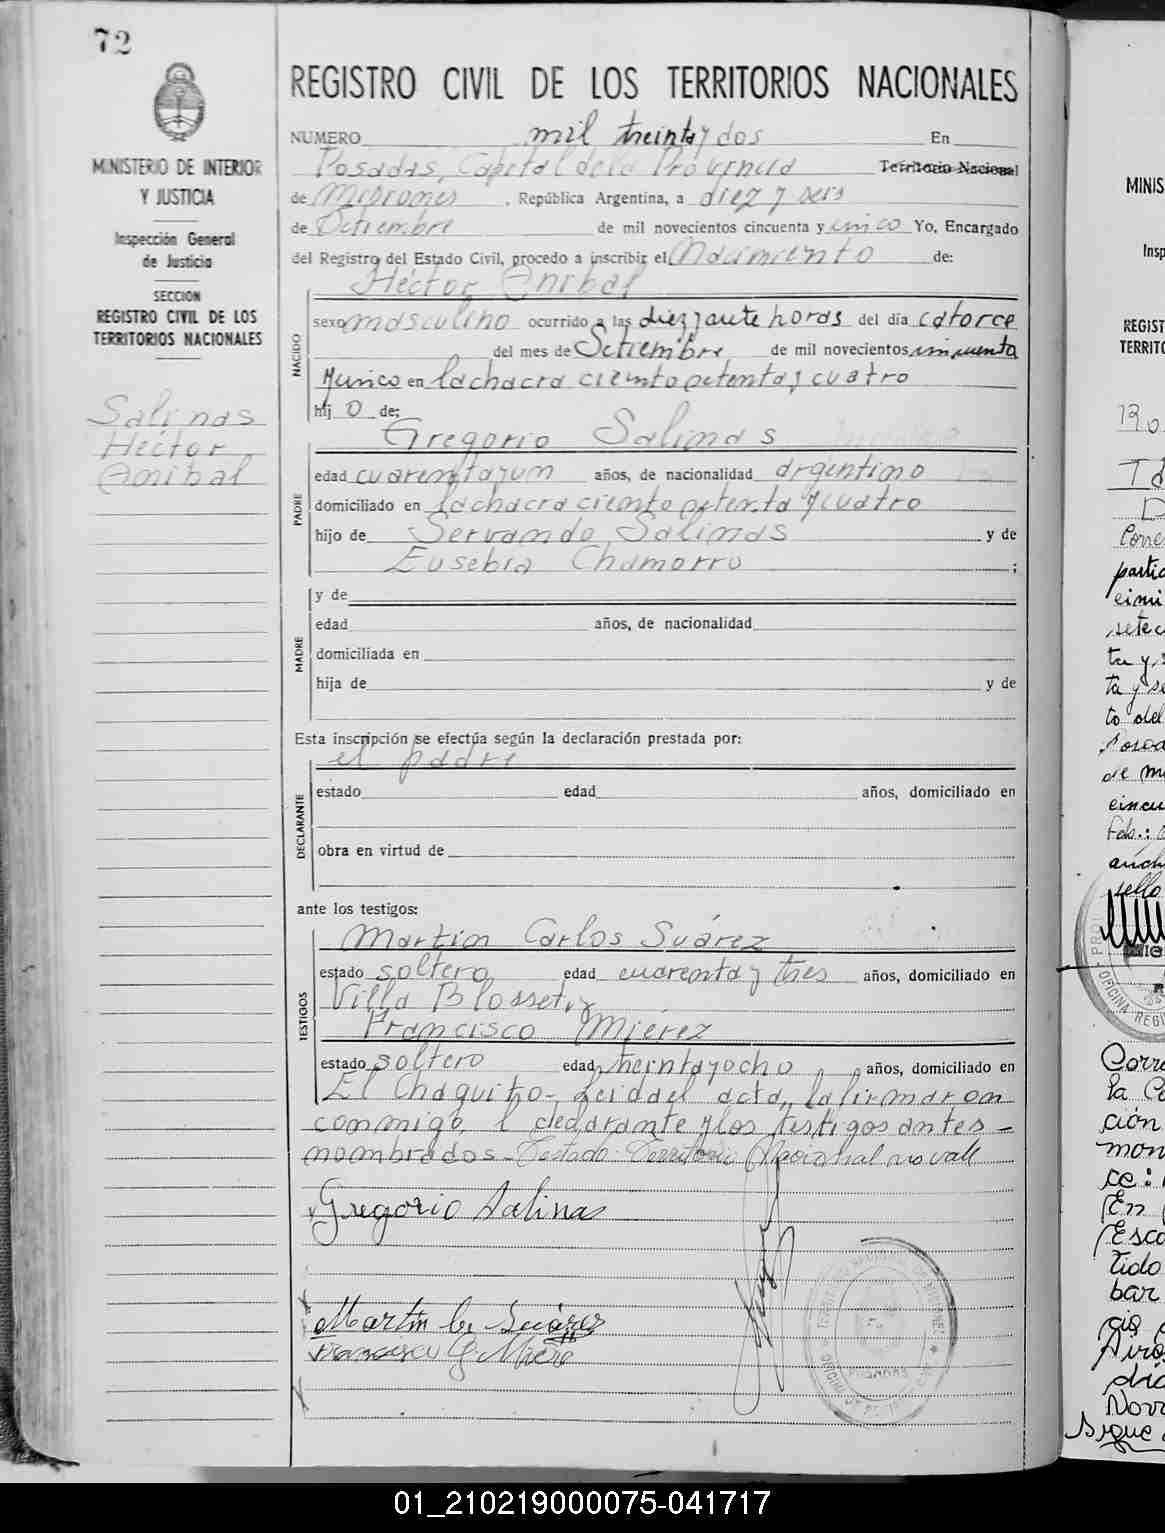 72
MINISTERIO DE INTERIOR
Y JUSTICIA
Inspección General
de Justicia
SECCION
REGISTRO CIVIL DE LOS
TERRITORIOS NACIONALES
Salinas
Héctor
Anibal
REGISTRO CIVIL DE LOS TERRITORIOS NACIONALES
NUMERO mil treinta y dos En
Posadas, Capital de la Provincia Territorio Nacional
de Misiones, República Argentina, a diez y seis
de Setiembre de mil novecientos cincuenta y cinco Yo, Encargado
del Registro del Estado Civil, procedo a inscribir el Nacimiento de:
Héctor Anibal
NACIDO
sexo masculino ocurrido a las diez y siete horas del día catorce
del mes de Setiembre de mil novecientos cincuenta
y cinco en la chacra ciento setenta y cuatro
hij o de:
Gregorio Salinas
PADRE
edad cuarenta y un años, de nacionalidad argentino
domiciliado en la chacra ciento setenta y cuatro
hijo de Servando Salinas y de
Eusebia Chamorro ;
MADRE
y de
edad años, de nacionalidad
domiciliada en
hija de y de
Esta inscripción se efectúa según la declaración prestada por:
el padre
DECLARANTE
estado edad años, domiciliado en
obra en virtud de
ante los testigos:
Martin Carlos Suárez
TESTIGOS
estado soltero edad cuarenta y tres años, domiciliado en
Villa Blosset y
Francisco Miérez
estado soltero edad treinta y ocho años, domiciliado en
El Chaquito - Leida el acta, la firmaron
conmigo, el declarante y los testigos antes -
nombrados - Testado: Territorio Nacional no vale
Gregorio Salinas
Martin C. Suárez
Francisco G. Mierez
POSADAS
MINIS
Insp
REGIST
TERRITO
Corre
la C
ción
mon
ce:
En
Esc
tido
bar
cio
Aires
día
Nov
Sigue
01_210219000075-041717